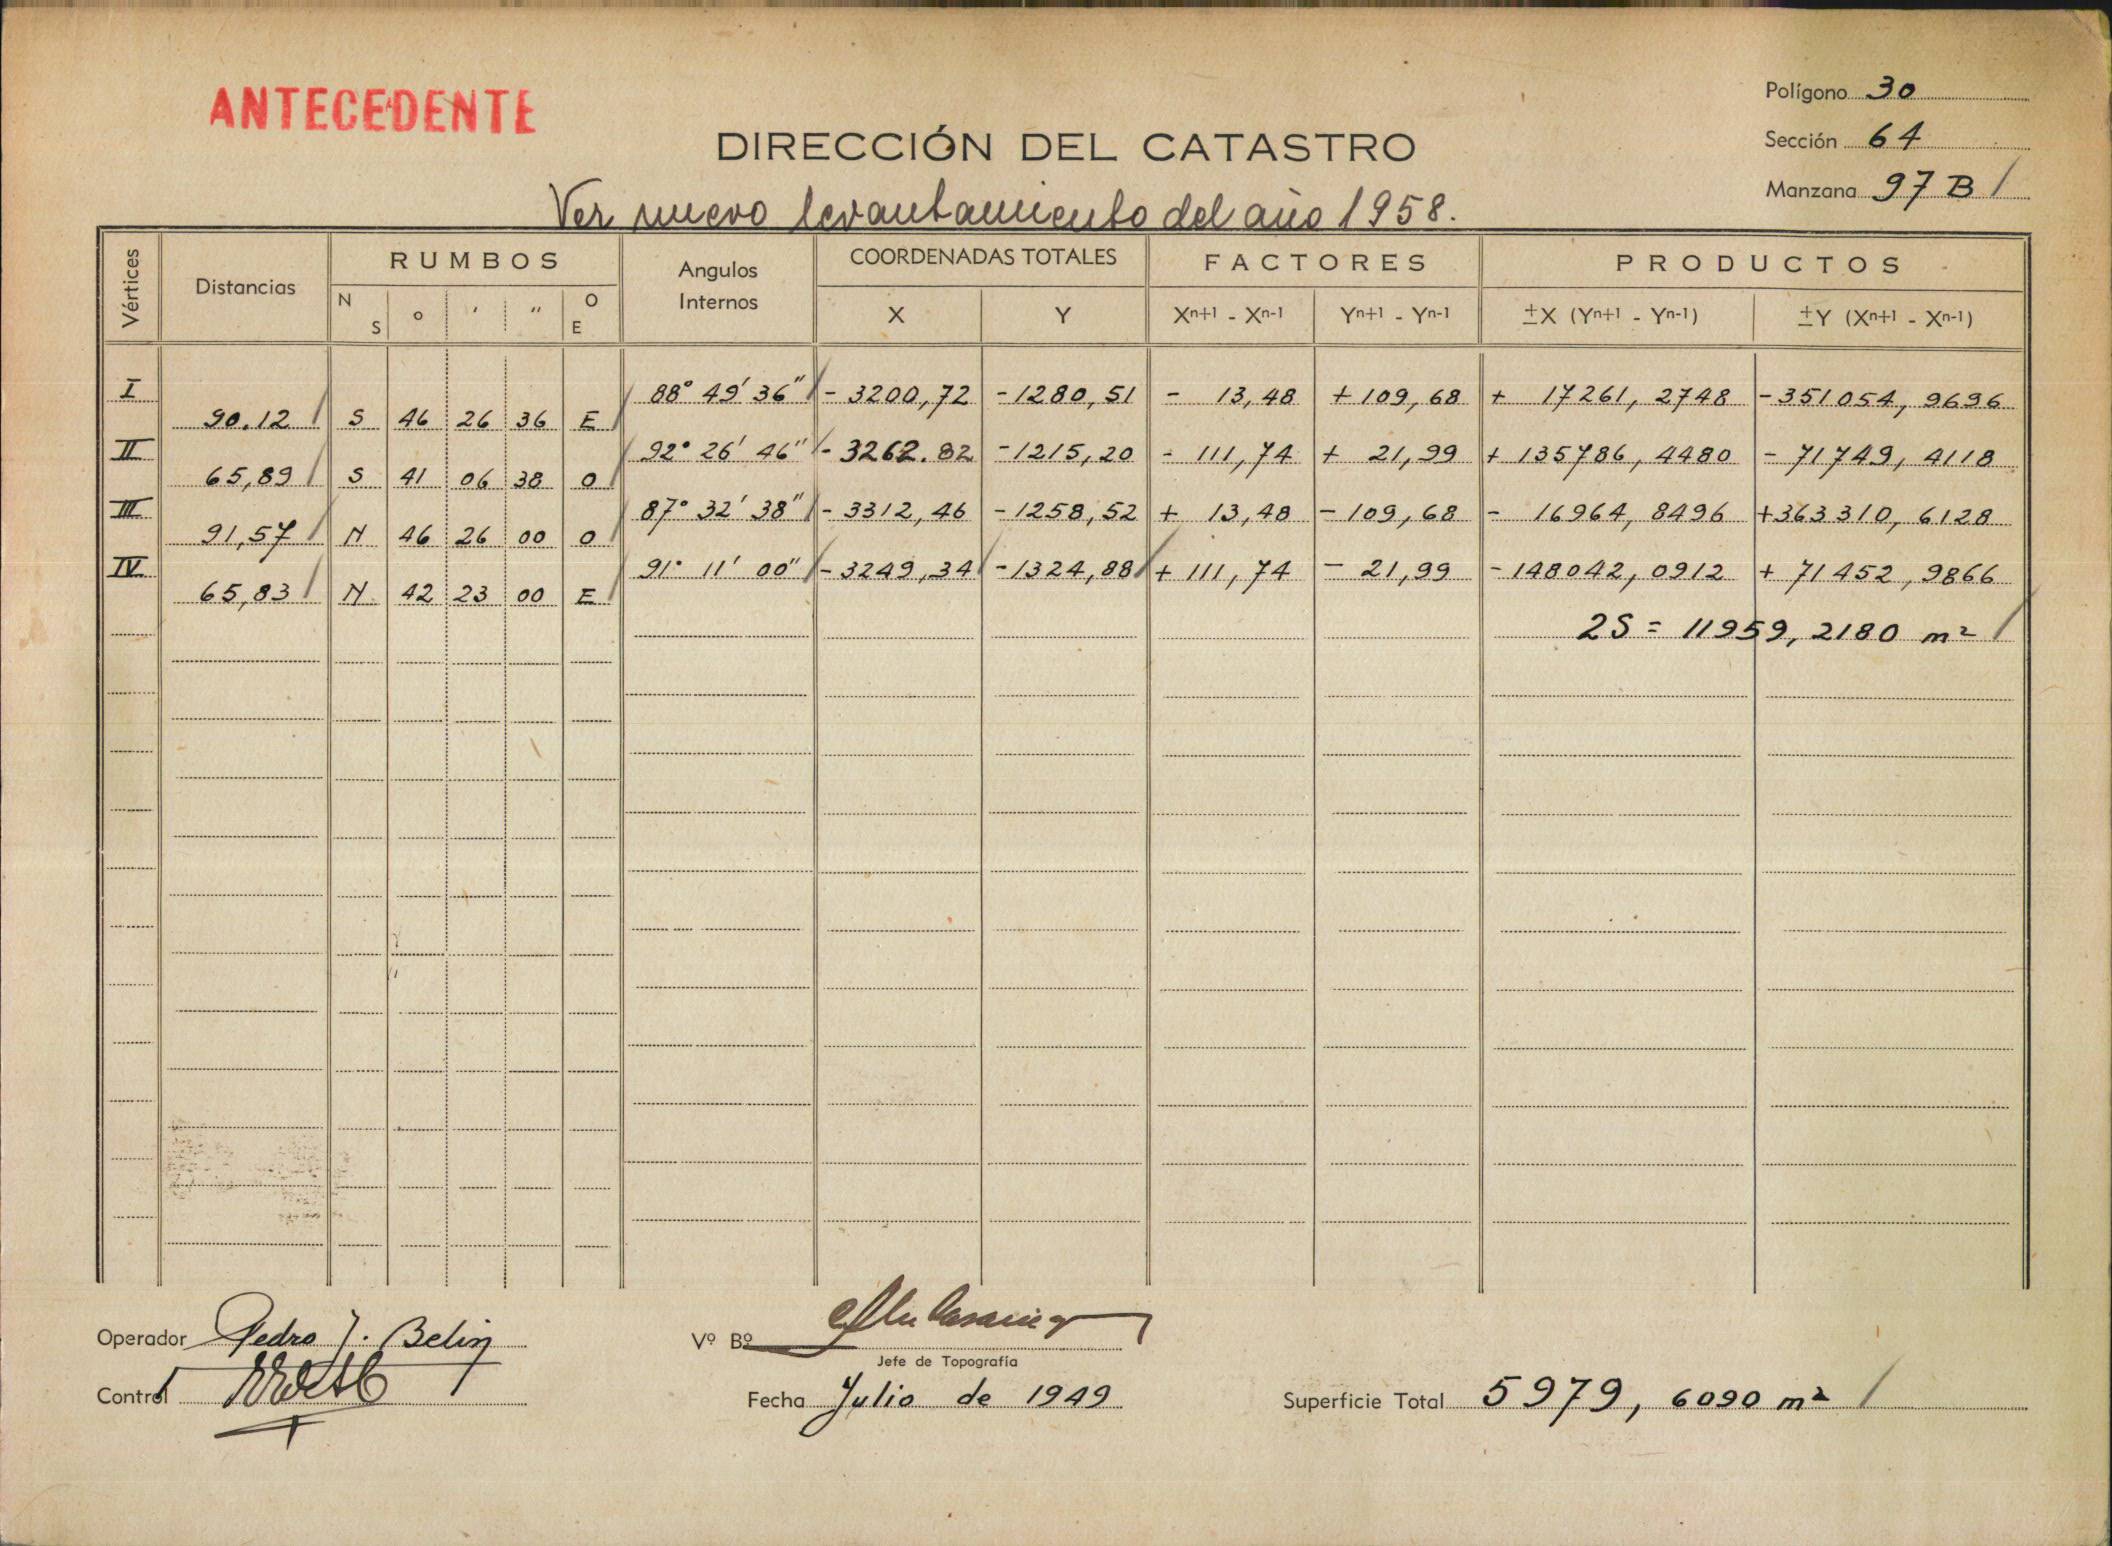 Polígono 30
ANTECEDENTE
Sección 64
DIRECCIÓN DEL CATASTRO
Manzana 97 B
Ver nuevo levantamiento del año 1958.
Vértices Distancias RUMBOS Angulos Internos COORDENADAS TOTALES FACTORES PRODUCTOS
N S ° ' " O E X Y Xn+1 - Xn-1 Yn+1 - Yn-1 ±X (Yn+1 - Yn-1) ±Y (Xn+1 - Xn-1)
I 88° 49' 36" - 3200,72 -1280,51 - 13,48 +109,68 + 17261,2748 -351054,9696
90.12 S 46 26 36 E
II 92° 26' 46" - 3262.82 -1215,20 - 111,74 + 21,99 + 135786,4480 - 71749,4118
65,89 S 41 06 38 O
III 87° 32' 38" - 3312,46 -1258,52 + 13,48 -109,68 - 16964,8496 +363310,6128
91,57 N 46 26 00 O
IV 91° 11' 00" -3249,34 -1324,88 + 111,74 - 21,99 -148042,0912 + 71452,9866
65,83 N 42 23 00 E
2S = 11959,2180 m²
Operador Pedro J. Belin
Vº Bº
Jefe de Topografía
Control
Fecha Julio de 1949
Superficie Total 5979,6090 m²